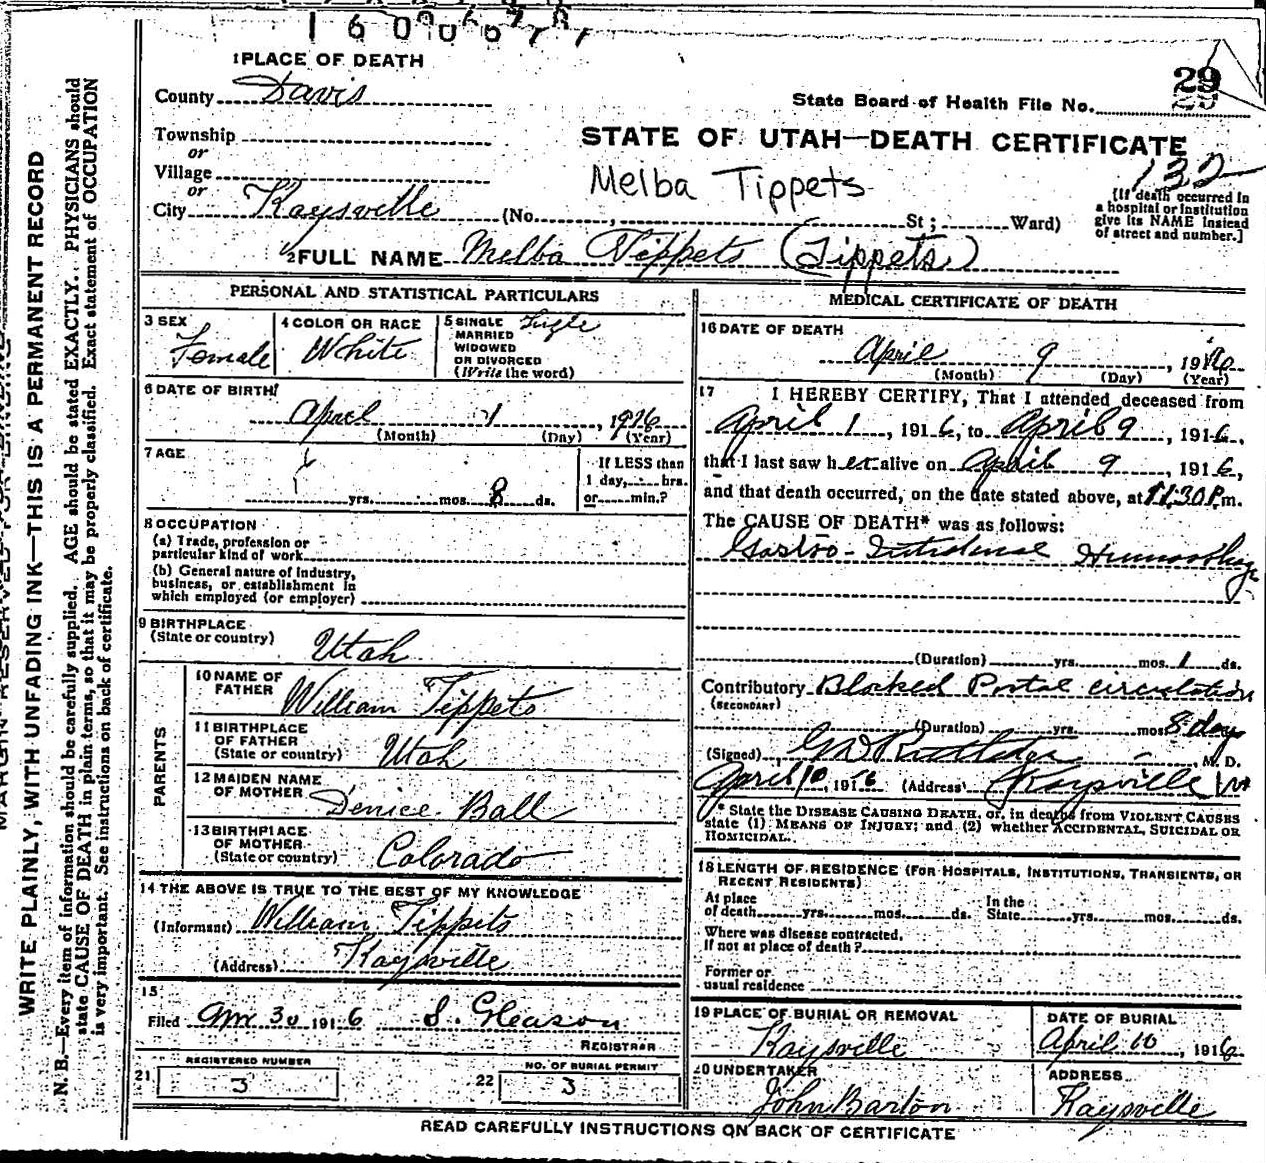 1 PLACE OF DEATH
29
County Davis
State Board of Health File No.
Township
or
STATE OF UTAH—DEATH CERTIFICATE
132
Village
or
Melba Tippets
City Kaysville (No. , St; Ward)
[If death occurred in
a hospital or institution
give its NAME instead
of street and number.]
2 FULL NAME Melba Tippets (Tippets)
PERSONAL AND STATISTICAL PARTICULARS
3 SEX
Female
4 COLOR OR RACE
White
5 SINGLE
MARRIED
WIDOWED
OR DIVORCED
(Write the word)
Single
6 DATE OF BIRTH
April 1, 1916
(Month) (Day) (Year)
7 AGE
yrs. mos. 8 ds.
If LESS than
1 day, hrs.
or min.?
8 OCCUPATION
(a) Trade, profession or
particular kind of work
(b) General nature of Industry,
business, or establishment in
which employed (or employer)
9 BIRTHPLACE
(State or country)
Utah
PARENTS
10 NAME OF
FATHER
William Tippets
11 BIRTHPLACE
OF FATHER
(State or country)
Utah
12 MAIDEN NAME
OF MOTHER
Denice Ball
13 BIRTHPLACE
OF MOTHER
(State or country)
Colorado
14 THE ABOVE IS TRUE TO THE BEST OF MY KNOWLEDGE
(Informant) William Tippets
(Address) Kaysville
15
Filed Apr 30 1916 S. Gleason
REGISTRAR
REGISTERED NUMBER
21 3
NO. OF BURIAL PERMIT
22 3
MEDICAL CERTIFICATE OF DEATH
16 DATE OF DEATH
April 9, 1916
(Month) (Day) (Year)
17 I HEREBY CERTIFY, That I attended deceased from
April 1, 1916, to April 9, 1916,
that I last saw her alive on April 9, 1916,
and that death occurred, on the date stated above, at 11:30 P.m.
The CAUSE OF DEATH* was as follows:
Gastro-Intestinal Hemorrhage
(Duration) yrs. mos. 1 ds.
Contributory Blocked Portal circulation
(SECONDARY)
(Duration) yrs. mos 8 days
(Signed), M. D.
April 10, 1916 (Address) Kaysville
* State the DISEASE CAUSING DEATH, or, in deaths from VIOLENT CAUSES
state (1) MEANS OF INJURY; and (2) whether ACCIDENTAL, SUICIDAL OR
HOMICIDAL.
18 LENGTH OF RESIDENCE (FOR HOSPITALS, INSTITUTIONS, TRANSIENTS, OR
RECENT RESIDENTS)
At place
of death yrs. mos. ds.
In the
State yrs. mos. ds.
Where was disease contracted,
if not at place of death?
Former or
usual residence
19 PLACE OF BURIAL OR REMOVAL
Kaysville
DATE OF BURIAL
April 10, 1916
20 UNDERTAKER
John Barton
ADDRESS
Kaysville
READ CAREFULLY INSTRUCTIONS ON BACK OF CERTIFICATE
WRITE PLAINLY, WITH UNFADING INK—THIS IS A PERMANENT RECORD
N. B.—Every item of information should be carefully supplied. AGE should be stated EXACTLY. PHYSICIANS should
state CAUSE OF DEATH in plain terms, so that it may be properly classified. Exact statement of OCCUPATION
is very important. See instructions on back of certificate.